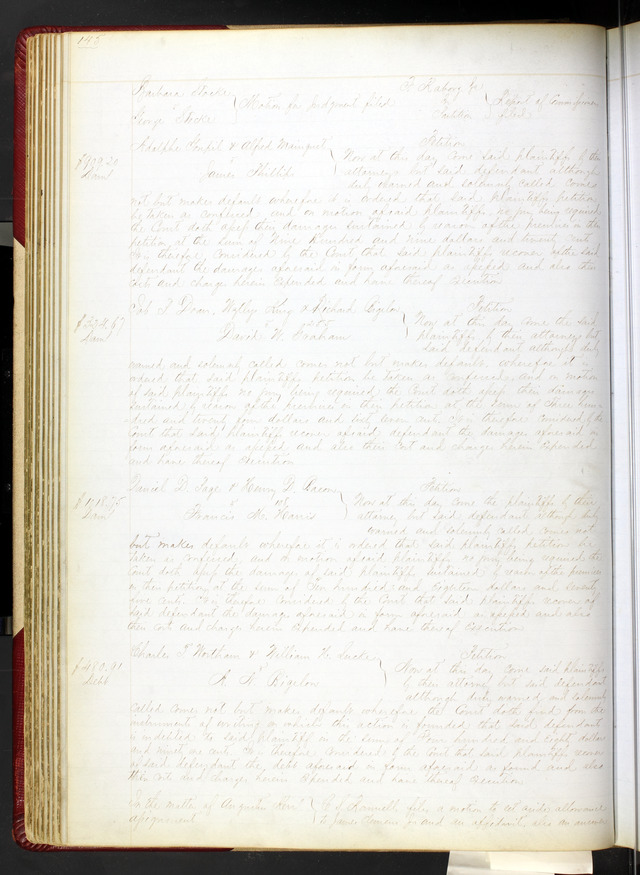 145
Barbara Locke
vs
George Locke
Motion for judgment filed
Petition
Report of Commissioner
filed
Adolphe & Alfred
vs
James
Petition
$909.20
Dam
Now at this day come said plaintiffs by their
attorneys but said defendant although
duly warned and solemnly called comes
not but makes default wherefore it is ordered that said plaintiffs petition
be taken as confessed and on motion of said plaintiffs no jury being required
the Court doth assess their damages sustained by reason of the premises in their
petition at the sum of Nine Hundred and nine dollars and twenty cents
It is therefore considered by the Court that said plaintiffs recover of the said
defendant the damages aforesaid in form aforesaid as assessed and also their
costs and charges herein expended and have thereof execution
J Dean, King & Richard
vs
David W. Graham
Petition
$324.67
Dam
Now at this day come the said
plaintiffs by their attorneys but
said defendant although duly
warned and solemnly called comes not but makes default wherefore it is
ordered that said plaintiffs petition be taken as confessed and on motion
of said plaintiffs no jury being required the Court doth assess their damages
sustained by reason of the premises in their petition at the sum of Three hun
dred and twenty four dollars and sixty seven cents It is therefore considered by the
Court that said plaintiffs recover of said defendant the damages aforesaid in
form aforesaid as assessed and also their costs and charges herein expended
and have thereof execution
Daniel D. Page & Henry D. Bacon
vs
Francis M. Harris
Petition
Dam
Now at this day come the plaintiffs by their
attorney but said defendant although duly
warned and solemnly called comes not
but makes default wherefore it is ordered that said plaintiffs petition be
taken as confessed and on motion of said plaintiffs no jury being required the
Court doth assess the damages of said plaintiffs sustained by reason of the premises
in their petition at the sum of hundred and Eighteen dollars and seventy
five cents It is therefore considered by the Court that said plaintiffs recover of
said defendant the damages aforesaid in form aforesaid as assessed and also
their costs and charges herein expended and have thereof execution
Charles T Wortham & William H. Locke
vs
A. N. Rigelow
Petition
$480.91
Debt
Now at this day come said plaintiffs
by their attorney but said defendant
although duly warned and solemnly
called comes not but makes default wherefore the Court doth find from the
instrument of writing on which the action is founded that said defendant
is indebted to said plaintiffs in the sum of Four hundred and Eighty dollars
and ninety one cents It is therefore considered by the Court that said plaintiffs recover
of said defendant the debt aforesaid in form aforesaid as found and also
their costs and charges herein expended and have thereof execution
In the matter of
assignment
files a motion to set aside allowance
to James and an affidavit also an answer